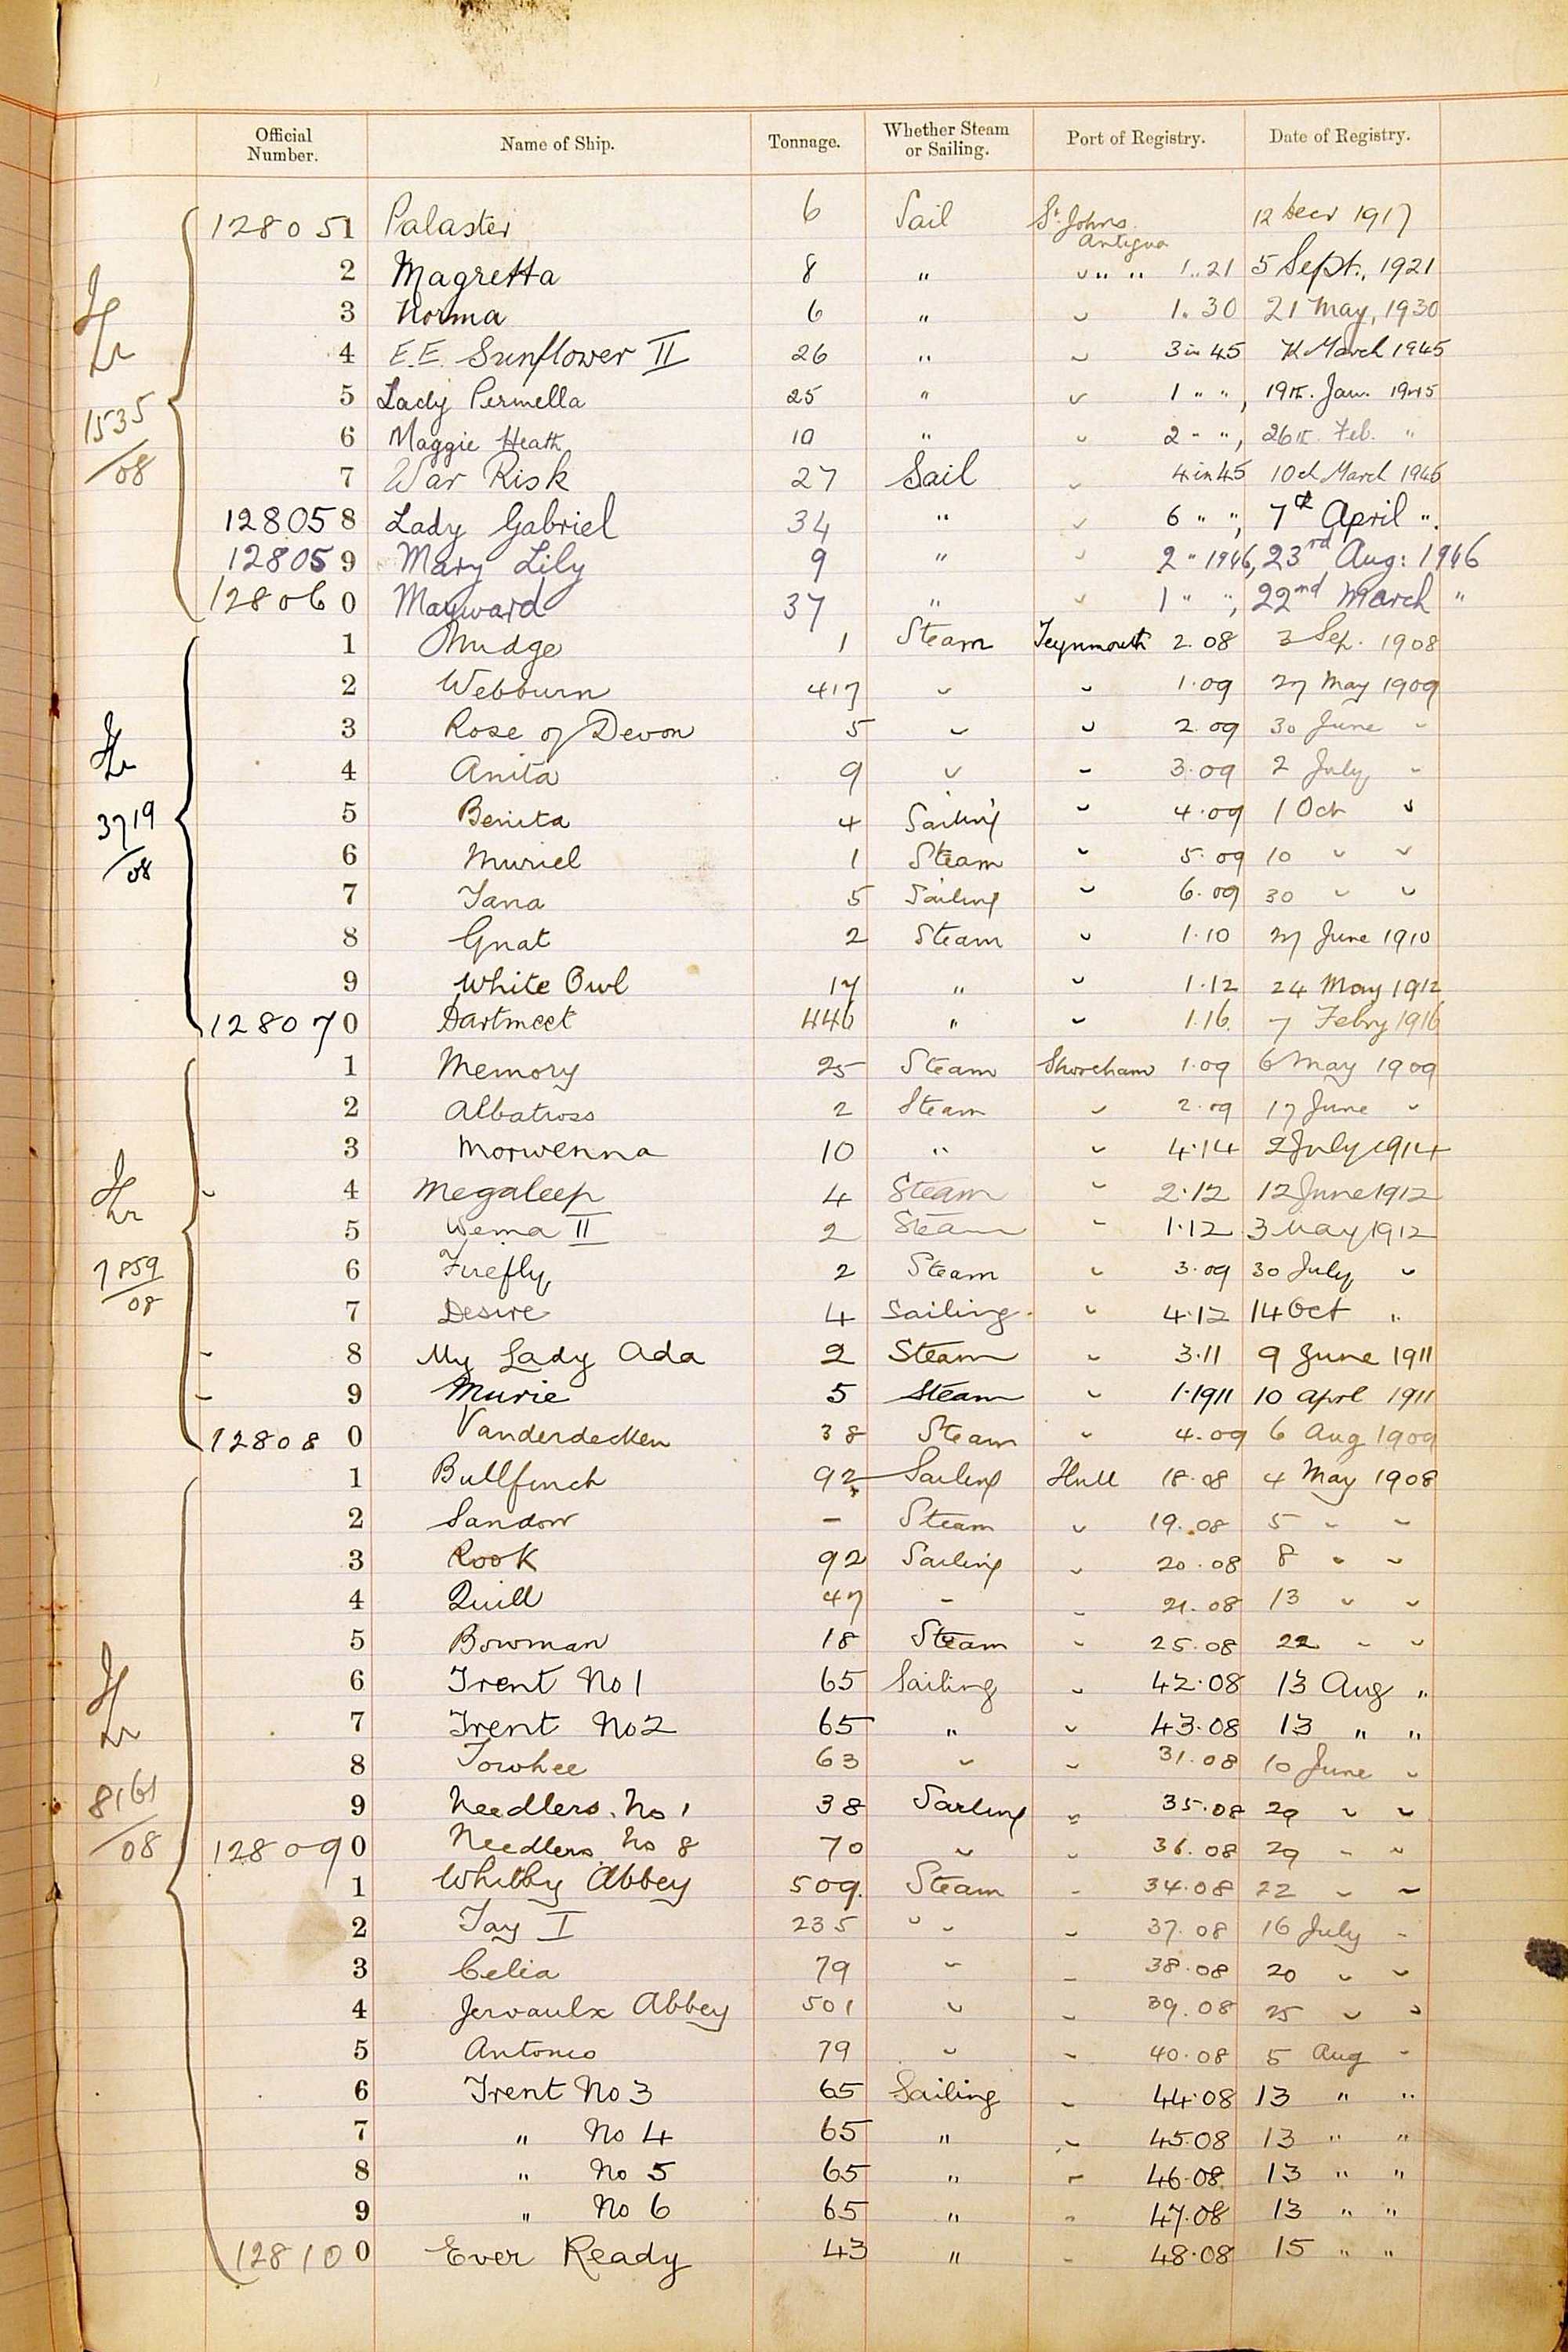 Official Number. Name of Ship. Tonnage. Whether Steam or Sailing. Port of Registry. Date of Registry.
128051 Palaster 6 Sail St Johns Antigua 12 Decr 1917
2 Magretta 8 " " " " 1.21 5 Sept., 1921
3 Norma 6 " " 1.30 21 May, 1930
4 E.E. Sunflower II 26 " " 3 in 45 March 1945
5 Lady Permella 25 " " 1 " ", 19th. Jan. 1945
6 Maggie Heath 10 " " 2 " ", 26th. Feb. "
7 War Risk 27 Sail " 4 in 45 10th March 1945
128058 Lady Gabriel 34 " " 6 " ", 7th April ".
128059 Mary Lily 9 " " 2 " 1946, 23rd Aug: 1946
128060 Mayward 37 " " 1 " ", 22nd March "
1 Mudge 1 Steam Teignmouth 2.08 3 Sep. 1908
2 Webburn 417 " " 1.09 27 May 1909
3 Rose of Devon 5 " " 2.09 30 June "
4 Anita 9 " " 3.09 2 July "
5 Benita 4 Sailing " 4.09 1 Oct "
6 Muriel 1 Steam " 5.09 10 " "
7 Tana 5 Sailing " 6.09 30 " "
8 Gnat 2 Steam " 1.10 27 June 1910
9 White Owl 17 " " 1.12 24 May 1912
128070 Dartmeet 446 " " 1.16. 7 Febry 1916
1 Memory 25 Steam Shoreham 1.09 6 May 1909
2 Albatross 2 Steam " 2.09 17 June "
3 Morwenna 10 " " 4.14 2 July 1914
4 Megaleep 4 Steam " 2.12 12 June 1912
5 Wema II 2 Steam " 1.12 3 May 1912
6 Firefly 2 Steam " 3.09 30 July "
7 Desire 4 Sailing " 4.12 14 Oct "
8 My Lady Ada 2 Steam " 3.11 9 June 1911
9 Murie 5 Steam " 1.1911 10 Aprl 1911
128080 Vanderdecken 38 Steam " 4.09 6 Aug 1909
1 Bullfinch 92 Sailing Hull 18.08 4 May 1908
2 Sandow – Steam " 19.08 5 " "
3 Rook 92 Sailing " 20.08 8 " "
4 Quill 47 " " 21.08 13 " "
5 Bowman 18 Steam " 25.08 22 " "
6 Trent No 1 65 Sailing " 42.08 13 Aug "
7 Trent No 2 65 " " 43.08 13 " "
8 Towhee 63 " " 31.08 10 June "
9 Needlers No 1 38 Sailing " 35.08 29 " "
128090 Needlers No 8 70 " " 36.08 29 " "
1 Whitby Abbey 509. Steam " 34.08 22 " "
2 Tay I 235 " " " 37.08 16 July "
3 Celia 79 " " 38.08 20 " "
4 Jervaulx Abbey 501 " " 39.08 25 " "
5 Antonio 79 " " 40.08 5 Aug "
6 Trent No 3 65 Sailing " 44.08 13 " "
7 " No 4 65 " " 45.08 13 " "
8 " No 5 65 " " 46.08 13 " "
9 " No 6 65 " " 47.08 13 " "
128100 Ever Ready 43 " " 48.08 15 " "
1535/08
3719/08
7859/08
8161/08